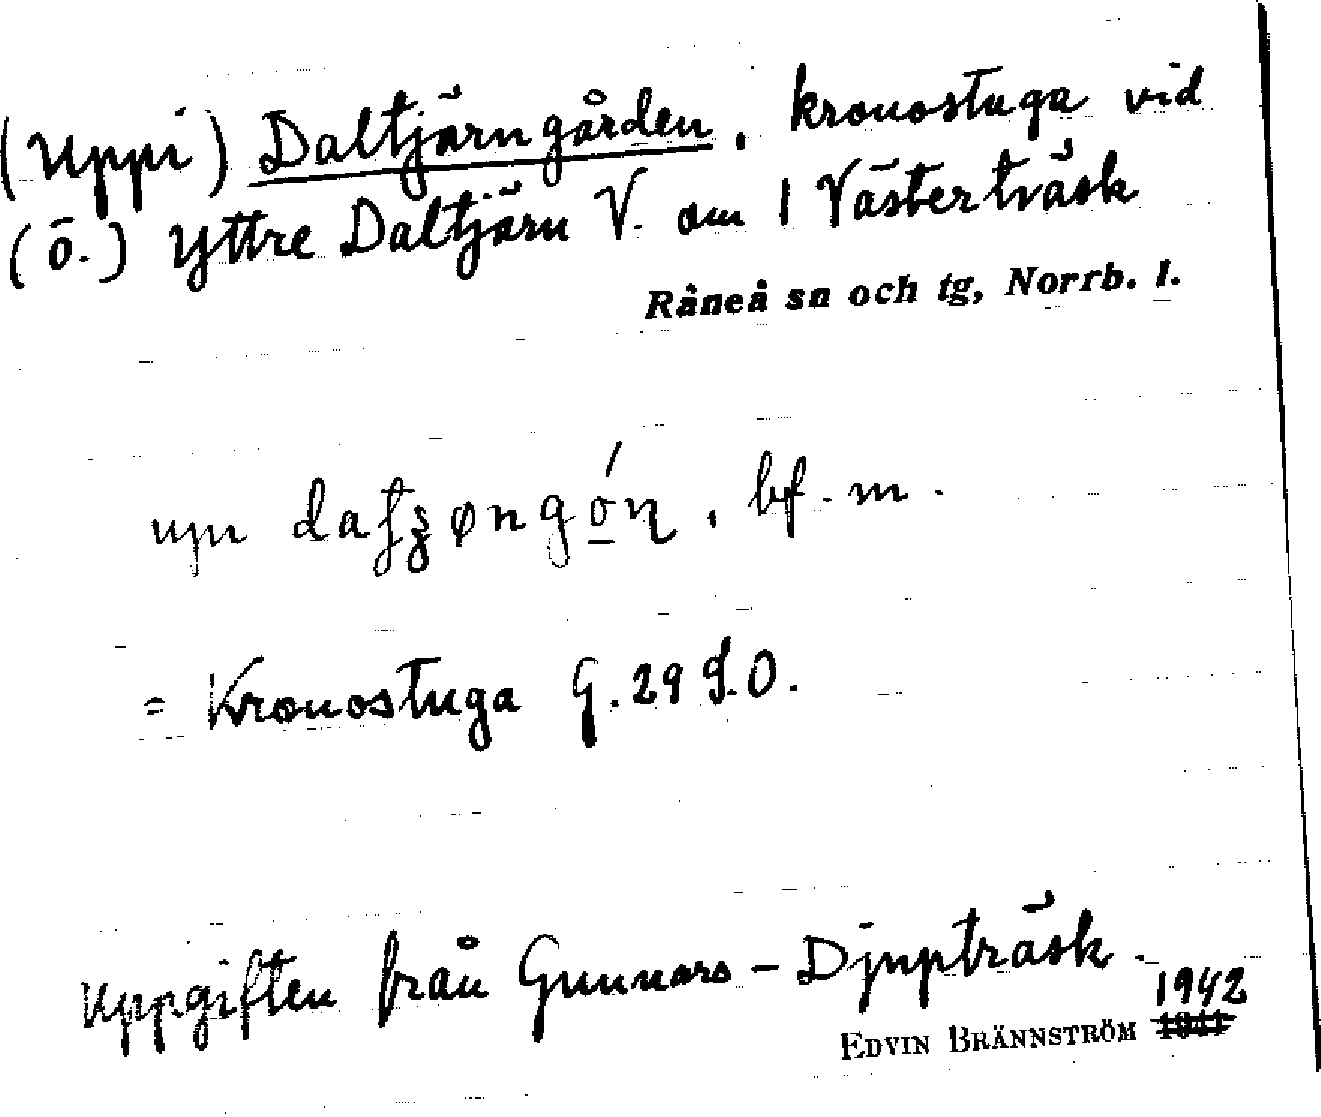 (uppi) Daltjärngården, kronostuga vid
(ö.) Yttre Daltjärn V. om 1 Västerträsk
Råneå sn och tg, Norrb. l.
bf. m.
= Kronostuga G. 29 S.O.
Uppgiften från Gunnars-Djupträsk.
1942
EDVIN BRÄNNSTRÖM 1941